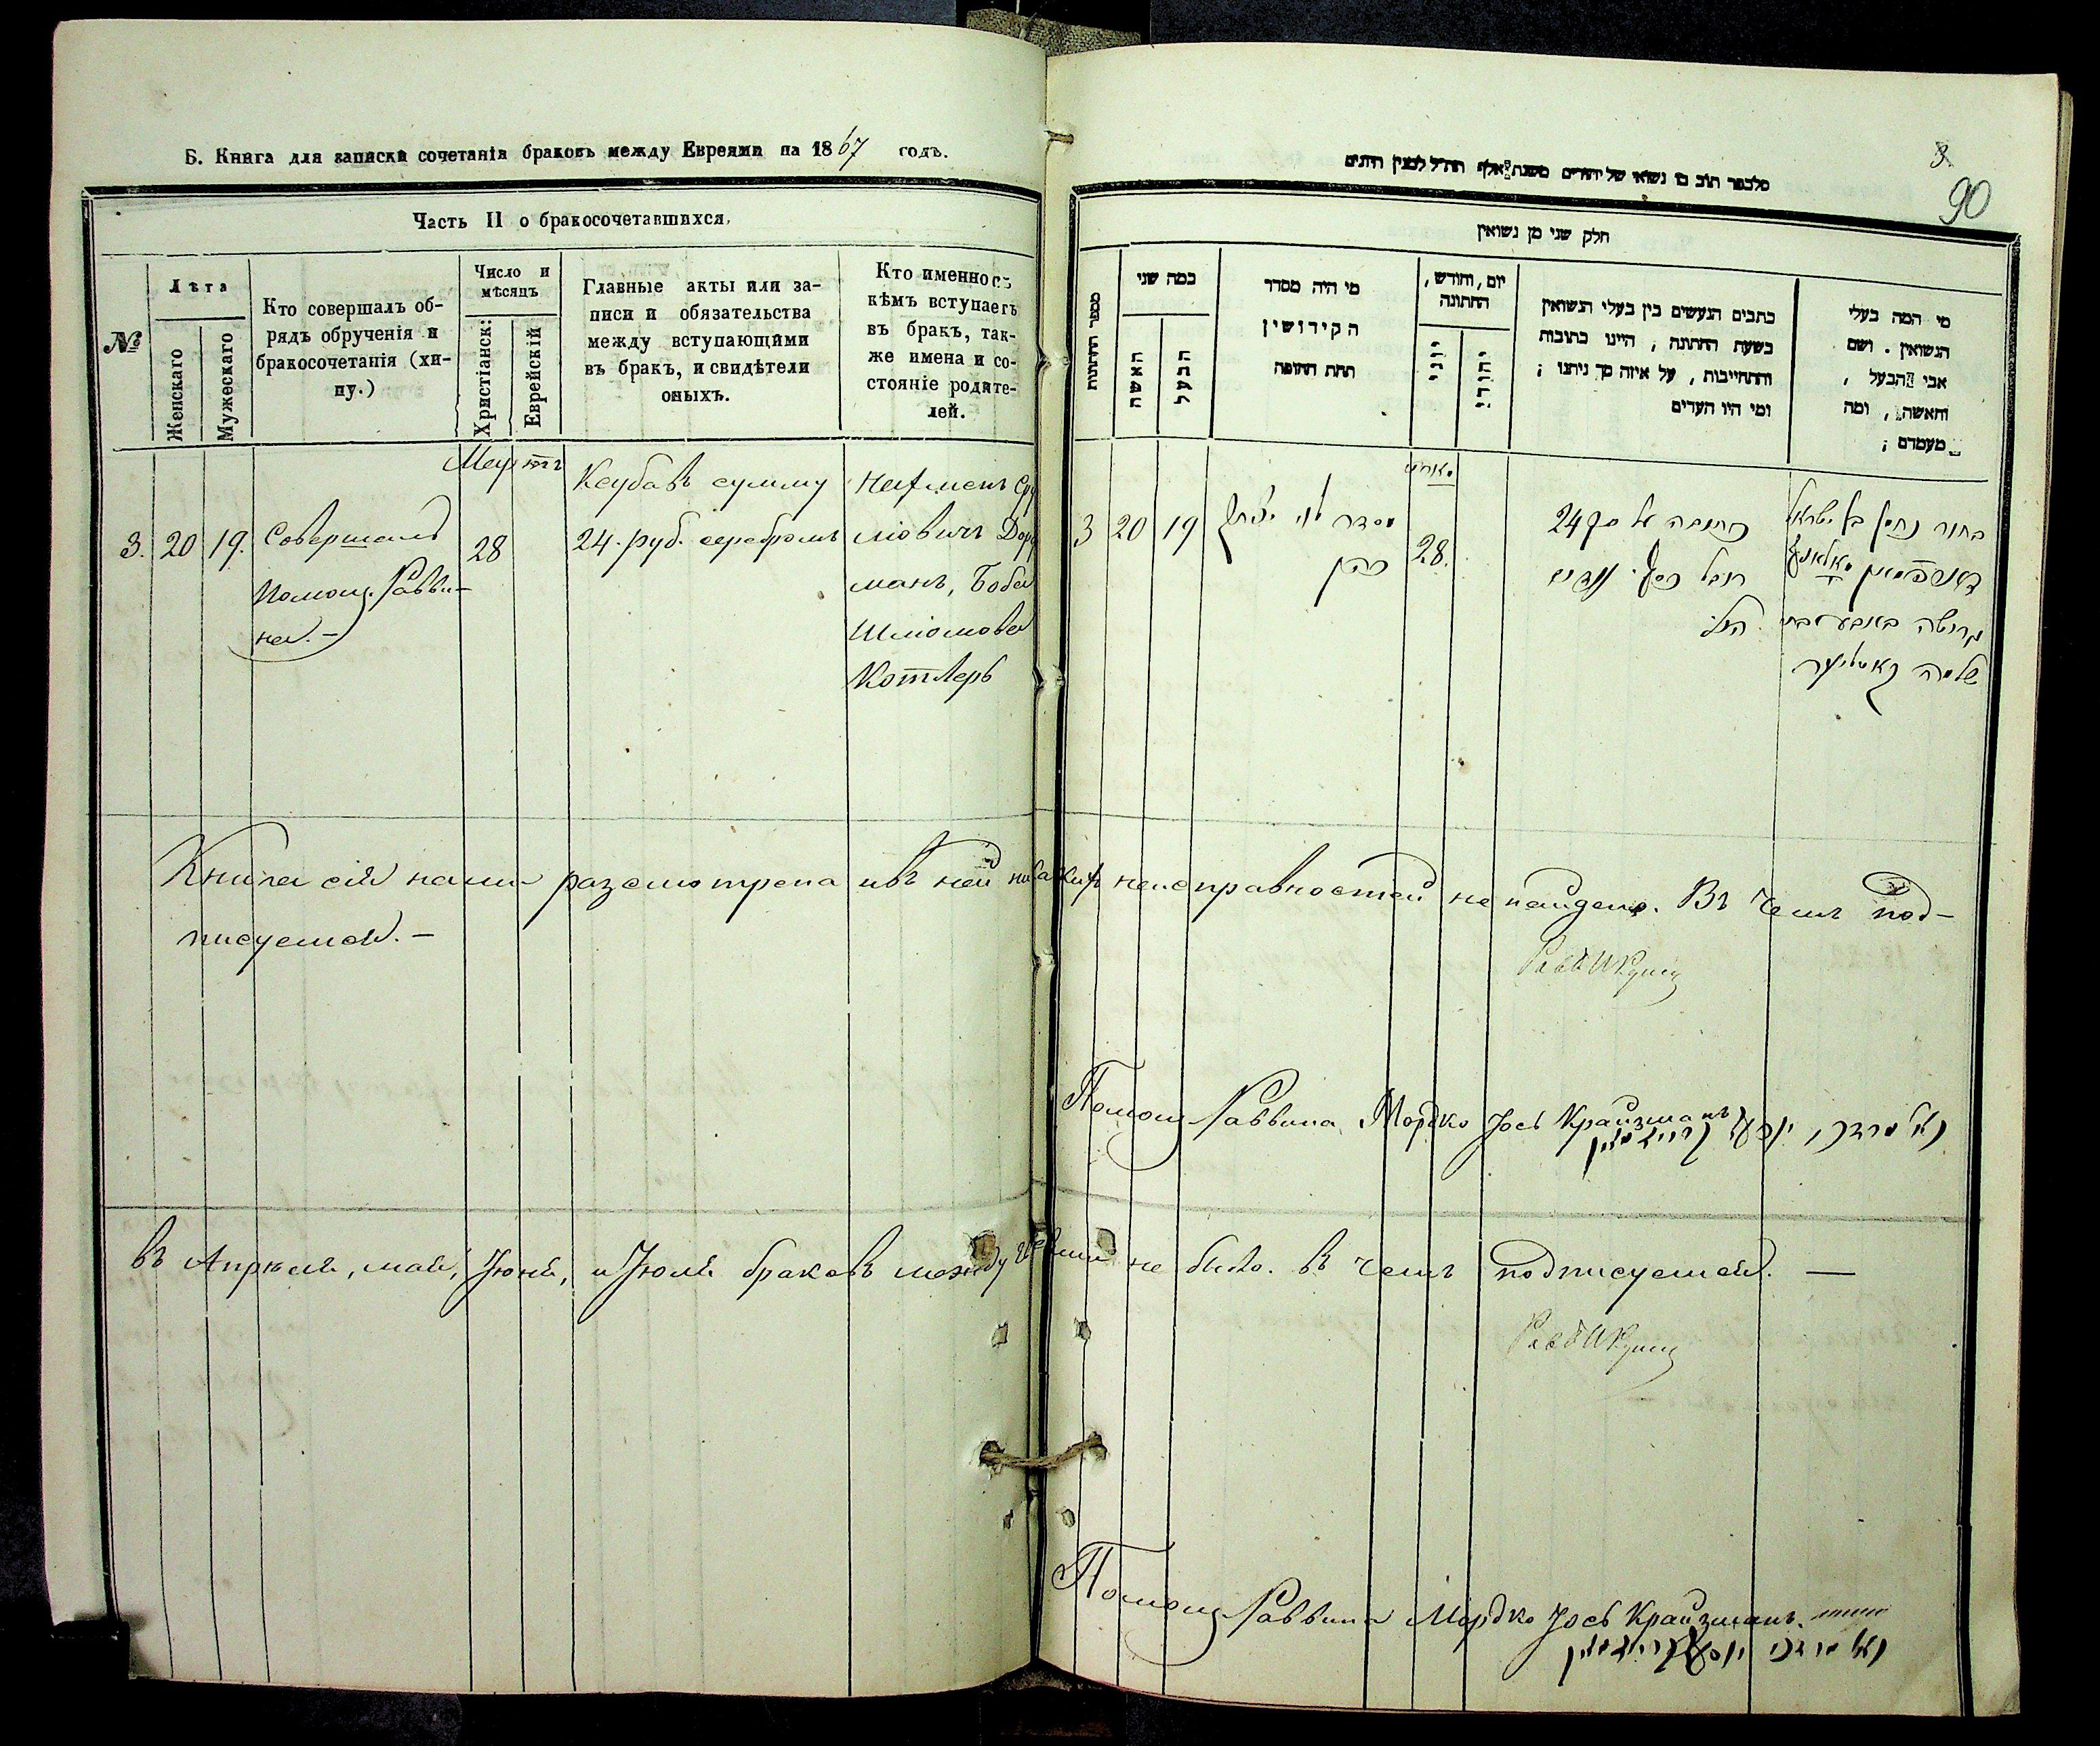 Б. Книга для записки сочетанія браковъ между Евреями на 1867 годъ.
Часть II о бракосочетавшихся.
№
Лѣта
Женскаго
Мужескаго
Кто совершалъ об-
рядъ обрученія и
бракосочетанія (хи-
пу.)
Число и
мѣсяцъ
Христіанск:
Еврейскій
Главные акты или за-
писи и обязательства
между вступающими
въ бракъ, и свидѣтели
оныхъ.
Кто именно съ
кѣмъ вступаетъ
въ бракъ, так-
же имена и со-
стояніе родите-
лей.
Мартъ
3. 20 19.
Совершалъ
Помощ. Рабви-
на. –
28
Ксубавъ сумму
24. руб. серебромъ
Нахменъ Сру
ліовичъ Дорф
манъ, Боба
Шліомова
Котлеръ
Книга сія нами разсмотрена и въ ней никакихъ неисправностей не найдено. Въ чемъ под-
писуемся. –
Помощ Раввина Мордко Іосъ Крайзманъ
въ Апрѣлѣ, маѣ, Іюнѣ, и Іюлѣ браковъ между не было. въ чемъ подписуемся. —
Помощ Раввина Мордко Іосъ Крайзманъ.
3
90
חלק שני מן נשואין
מספר החתונות
כמה שני
האשה
הבעל
מי היה מסדר
הקידושין
תחת החופה
יום, וחודש,
החתונה
יווני
יהודי
כתבים הנעשים בין בעלי הנשואין
בשעת החתונה, היינו כתובות
והתחייבות, על איזה סך ניתנו;
ומי היו העדים
מי המה בעלי
הנשואין. ושם
אבי הבעל,
והאשה, ומה
מעמדם;
3 20 19
28.
כתובה על סך 24
בחור נחמן בן ישראל
שלמה קאטליער